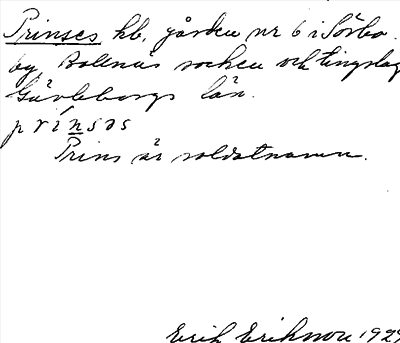 Prinses hb, gården nr 6 i Sörbo
by Bollnäs socken och tingslag
Gävleborgs län.
prínsəs
Prins är soldatnamn.
Erik Erikson 1929